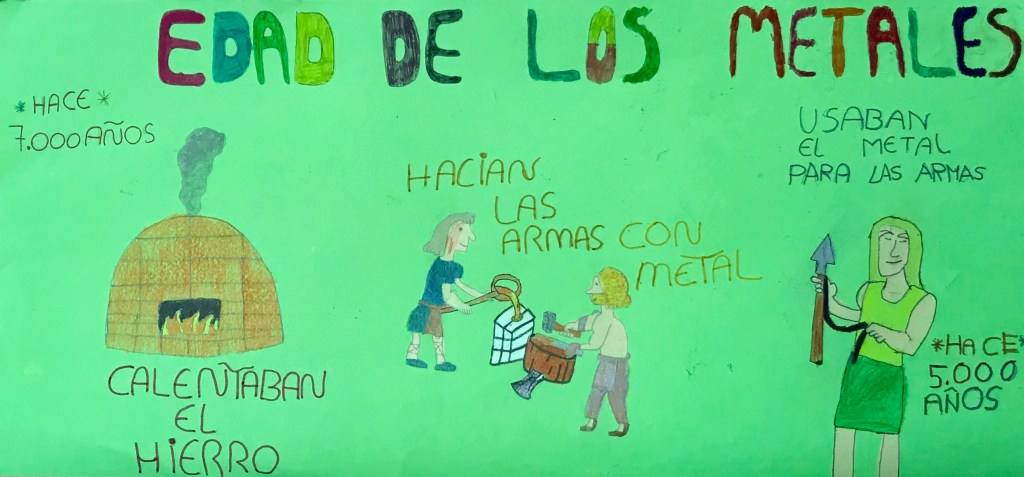 EDAD DE LOS METALES
*HACE*
7.000 AÑOS
CALENTABAN
EL
HIERRO
HACIAN
LAS
ARMAS CON
METAL
USABAN
EL METAL
PARA LAS ARMAS
*HACE*
5.000
AÑOS